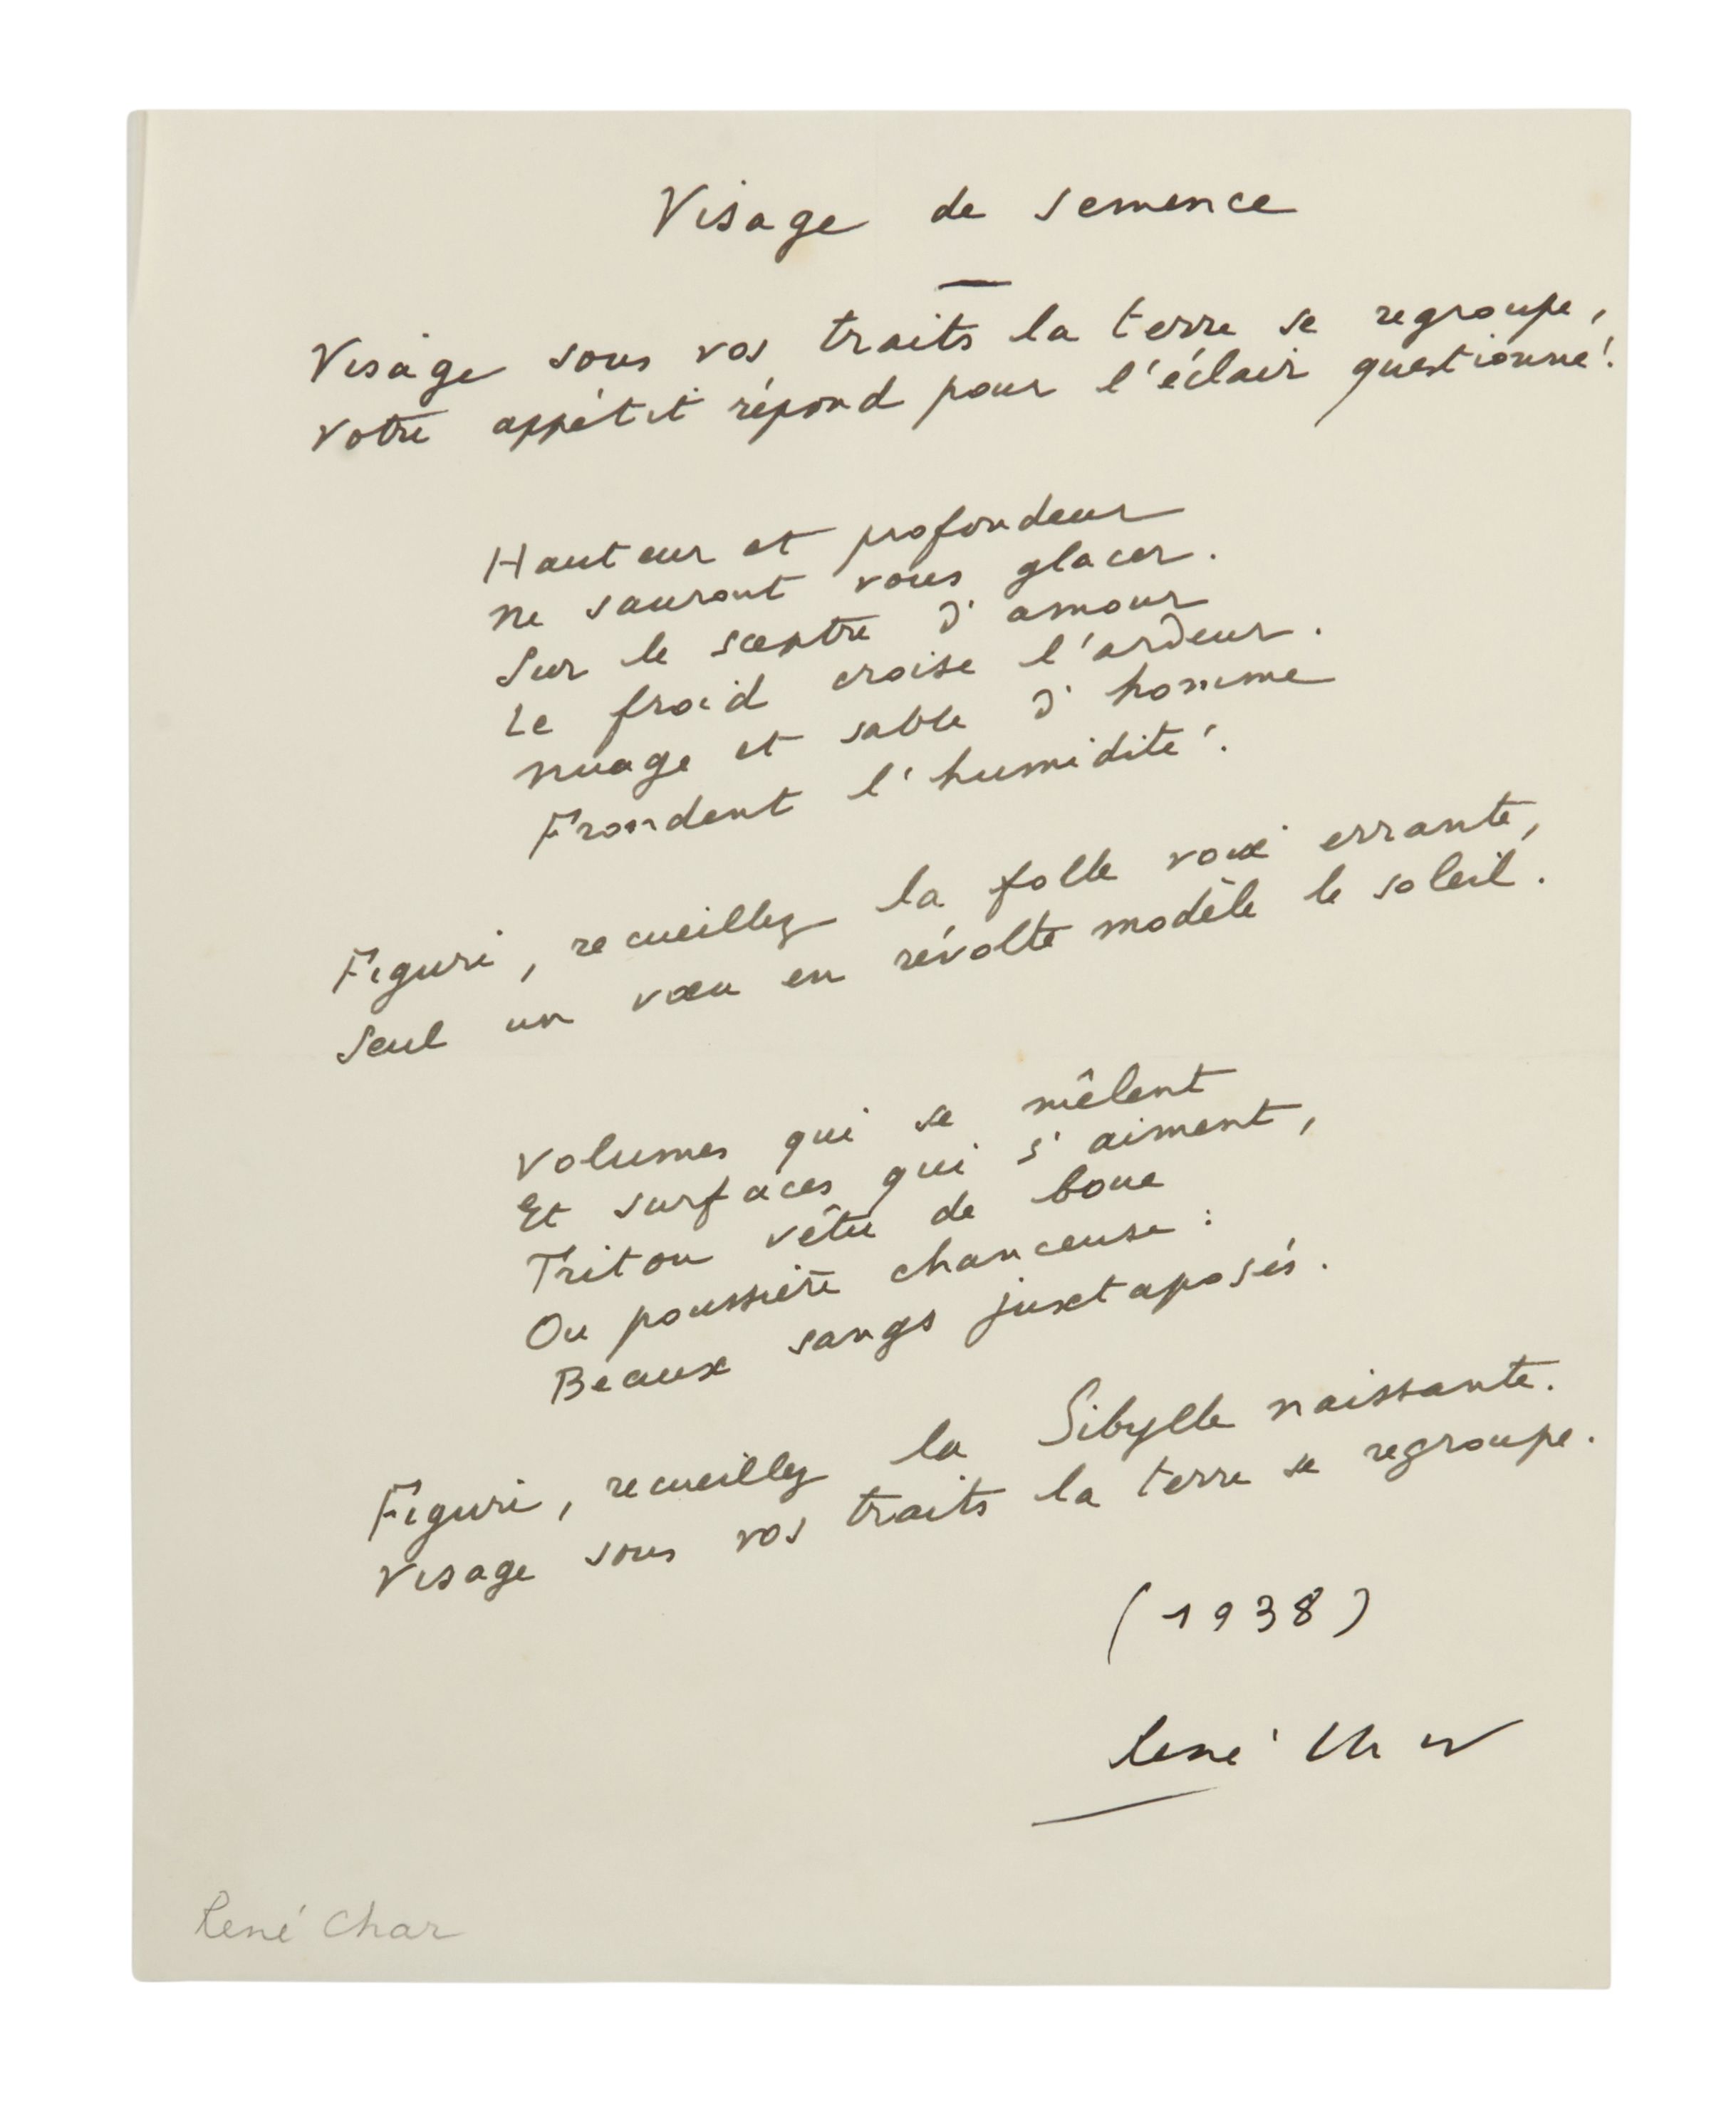 Visage de semence
—
Visage sous vos traits la terre se regroupe,
Votre appétit répond pour l'éclair questionné.
Hauteur et profondeur
Ne sauront vous glacer.
Sur le sceptre d'amour
Le froid croise l'ardeur.
Nuage et sable d'homme
Frondent l'humidité.
Figure, recueillez la folle voix errante,
Seul un vœu en révolte modèle le soleil.
Volumes qui se mêlent
Et surfaces qui s'aiment,
Triton vêtu de boue
Ou poussière chanceuse :
Beaux sangs juxtaposés.
Figure, recueillez la Sibylle naissante.
Visage sous vos traits la terre se regroupe.
(1938)
René Char
René Char